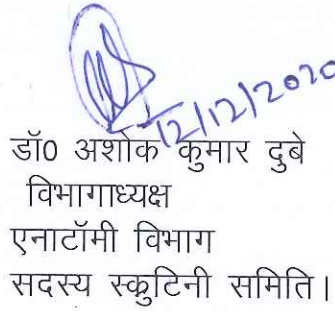 12/12/2020
डॉ0 अशोक कुमार दुबे
विभागाध्यक्ष
एनाटॉमी विभाग
सदस्य स्कुटिनी समिति।